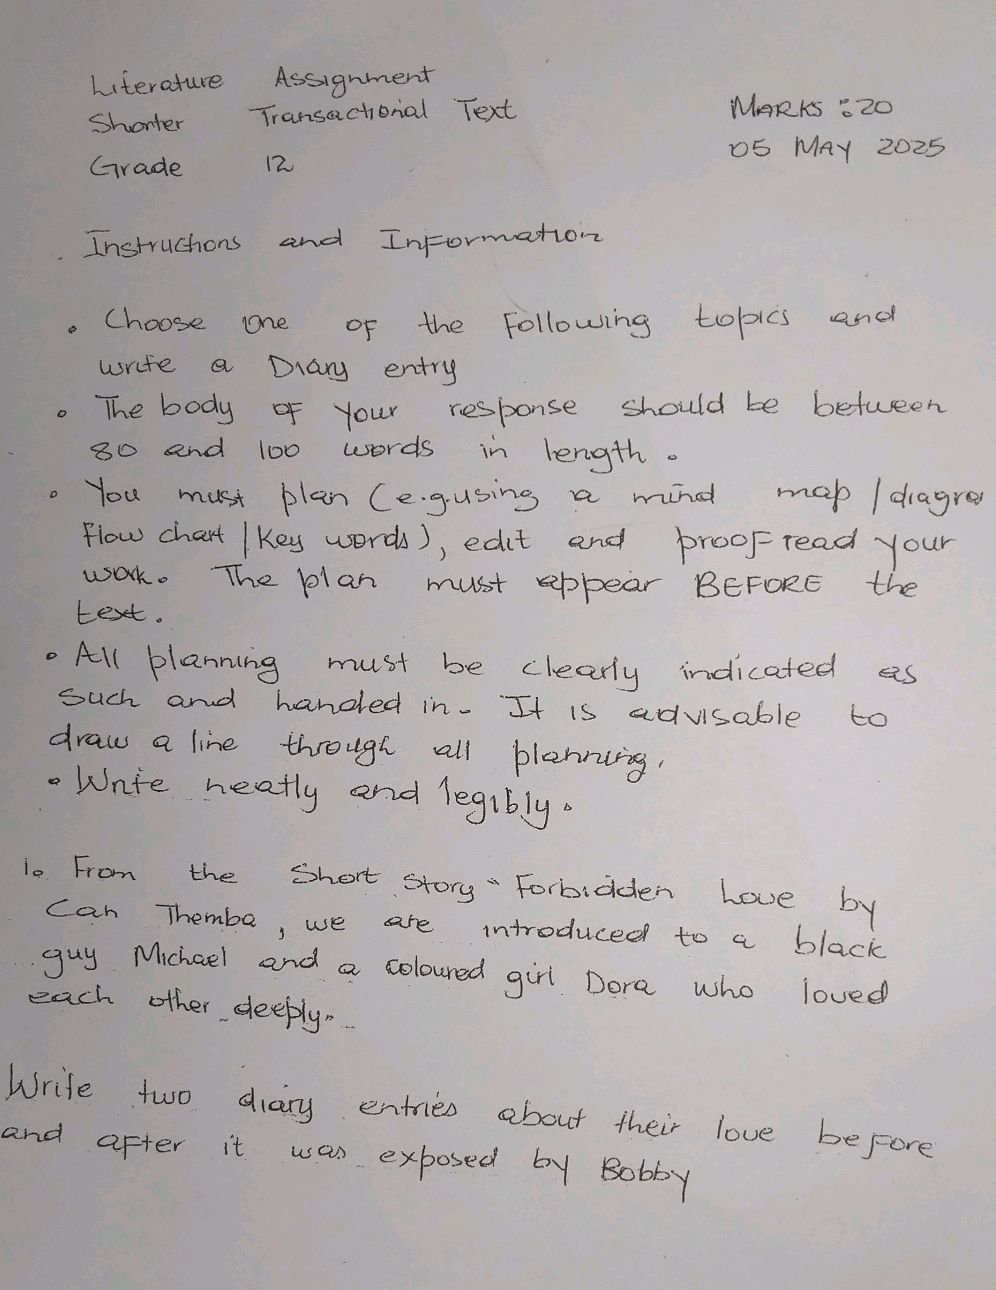 Literature Assignment
Shorter Transactional Text
MARKS : 20
Grade 12
05 MAY 2025
Instructions and Information
• Choose one of the following topics and
write a Diary entry
• The body of your response should be between
80 and 100 words in length.
• You must plan (e.g.using a mind map / diagra
flow chart / Key words), edit and proof read your
work. The plan must appear BEFORE the
text.
• All planning must be clearly indicated as
such and handed in. It is advisable to
draw a line through all planning.
• Write neatly and legibly.
1. From the Short Story " Forbidden Love by
Can Themba, we are introduced to a black
guy Michael and a coloured girl Dora who loved
each other deeply.
Write two diary entries about their love before
and after it was exposed by Bobby